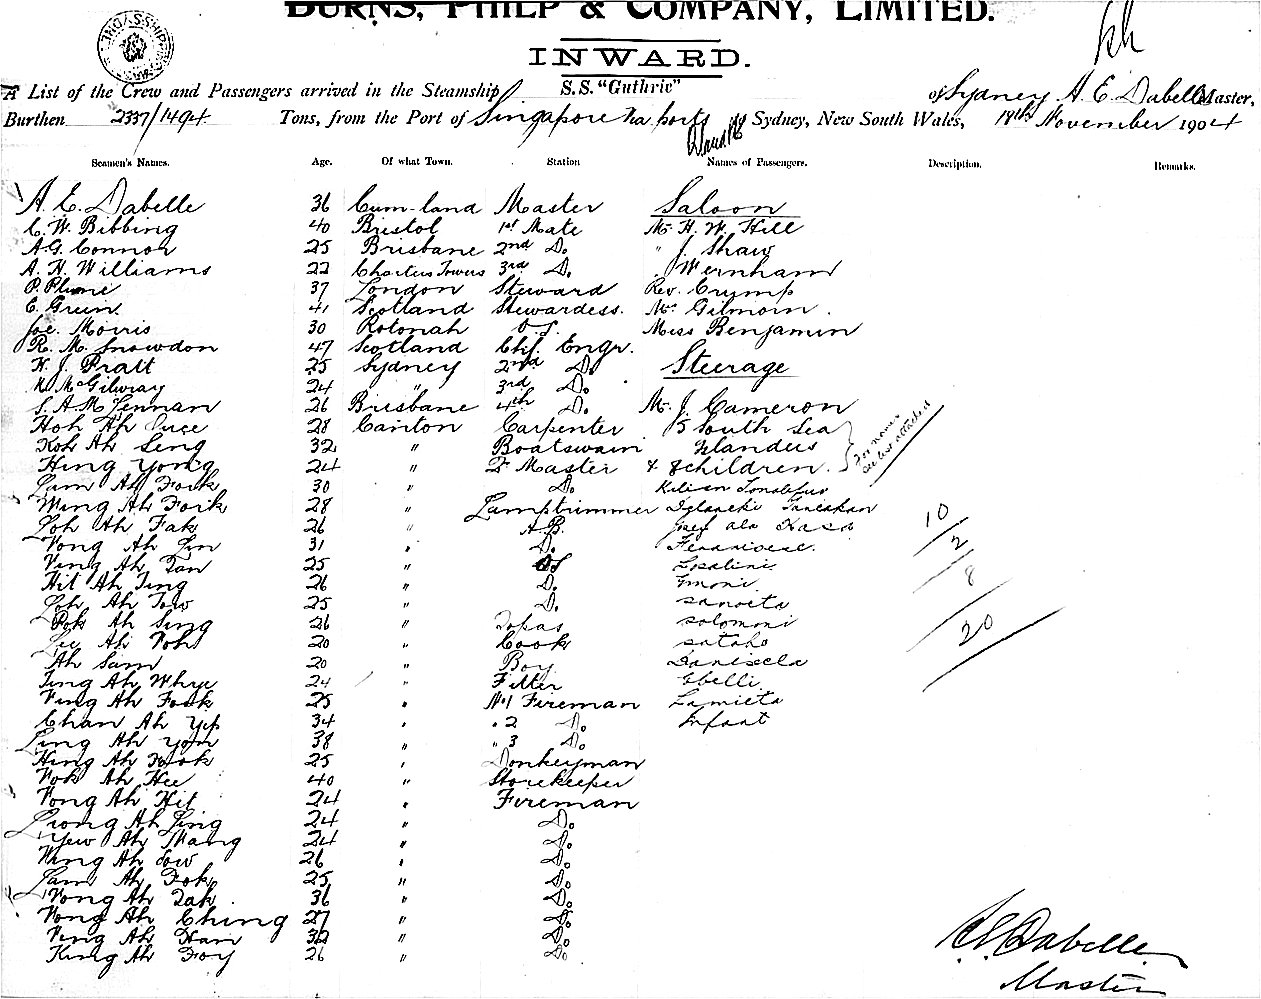 BURNS, PHILP & COMPANY, LIMITED.
INWARD.
A List of the Crew and Passengers arrived in the Steamship S.S. "Guthrie" of Sydney A. E. Dabelle Master,
Burthen 2337/1494 Tons, from the Port of Singapore via ports to Sydney, New South Wales, 18th November 1904
Seamen's Names. Age. Of what Town. Station Names of Passengers. Description. Remarks.
A. E. Dabelle 36 Cum-land Master Saloon
C. W. Bibbing 40 Bristol 1st Mate Mr. H. W. Hill
A. G. Connor 25 Brisbane 2nd Do. " J. Shaw
A. H. Williams 22 Charters Towers 3rd Do. " Wernham
P. Plume 37 London Steward Rev. Crump
E. Green 41 Scotland Stewardess. Mr. Gilmour.
Joe. Morris 30 Rotonah O.S. Miss Benjamin
R. M. Snowdon 47 Scotland Chf. Engr.
H. J. Pratt 25 Sydney 2nd Do. Steerage
McGilvray 24 " 3rd Do.
S. A. McLennan 26 Brisbane 4th Do. Mr. J. Cameron
Hoh Ah 28 Canton Carpenter 5 South Sea
Koh Ah Seng 32 " Boatswain Islanders
Hing Yong 24 " Qr. Master & 8 children.
For names see list attached
Lum Ah Fook 30 " Do.
Wing Ah Foik 28 " Lamptrimmer
Loh Ah Fak 26 " A.B.
Vong Ah Lin 31 " Do.
Ving Ah Tan 25 " OS Losalini
Hit Ah Ting 26 " Do. Emoni
Loh Ah Tow 25 " Do. Sanoeta
Pok Ah Sing 26 " Topas Solomoni
Lee Ah Voh 20 " Cook Sataho
Ah Sam 20 " Boy Daniela
Ting Ah Whye 24 " Fitter Ebelli
Ving Ah Fook 25 " No. 1 Fireman Lamieta
Chan Ah Yip 34 " " 2 Do. Infant
Ling Ah Yom 38 " " 3 Do.
Hing Ah Kook 25 " Donkeyman
Vok Ah Hee 40 " Storekeeper
Vong Ah Hit 24 " Fireman
Liong Ah Ling 24 " Do.
Yew Ah Mang 24 " Do.
Ving Ah Sow 26 " Do.
Lam Ah Fok 25 " Do.
Vong Ah Tak 36 " Do.
Vong Ah Ching 27 " Do.
Ving Ah Ham 32 " Do.
King Ah Foy 26 " Do.
10
2
8
20
A. E. Dabelle
Master